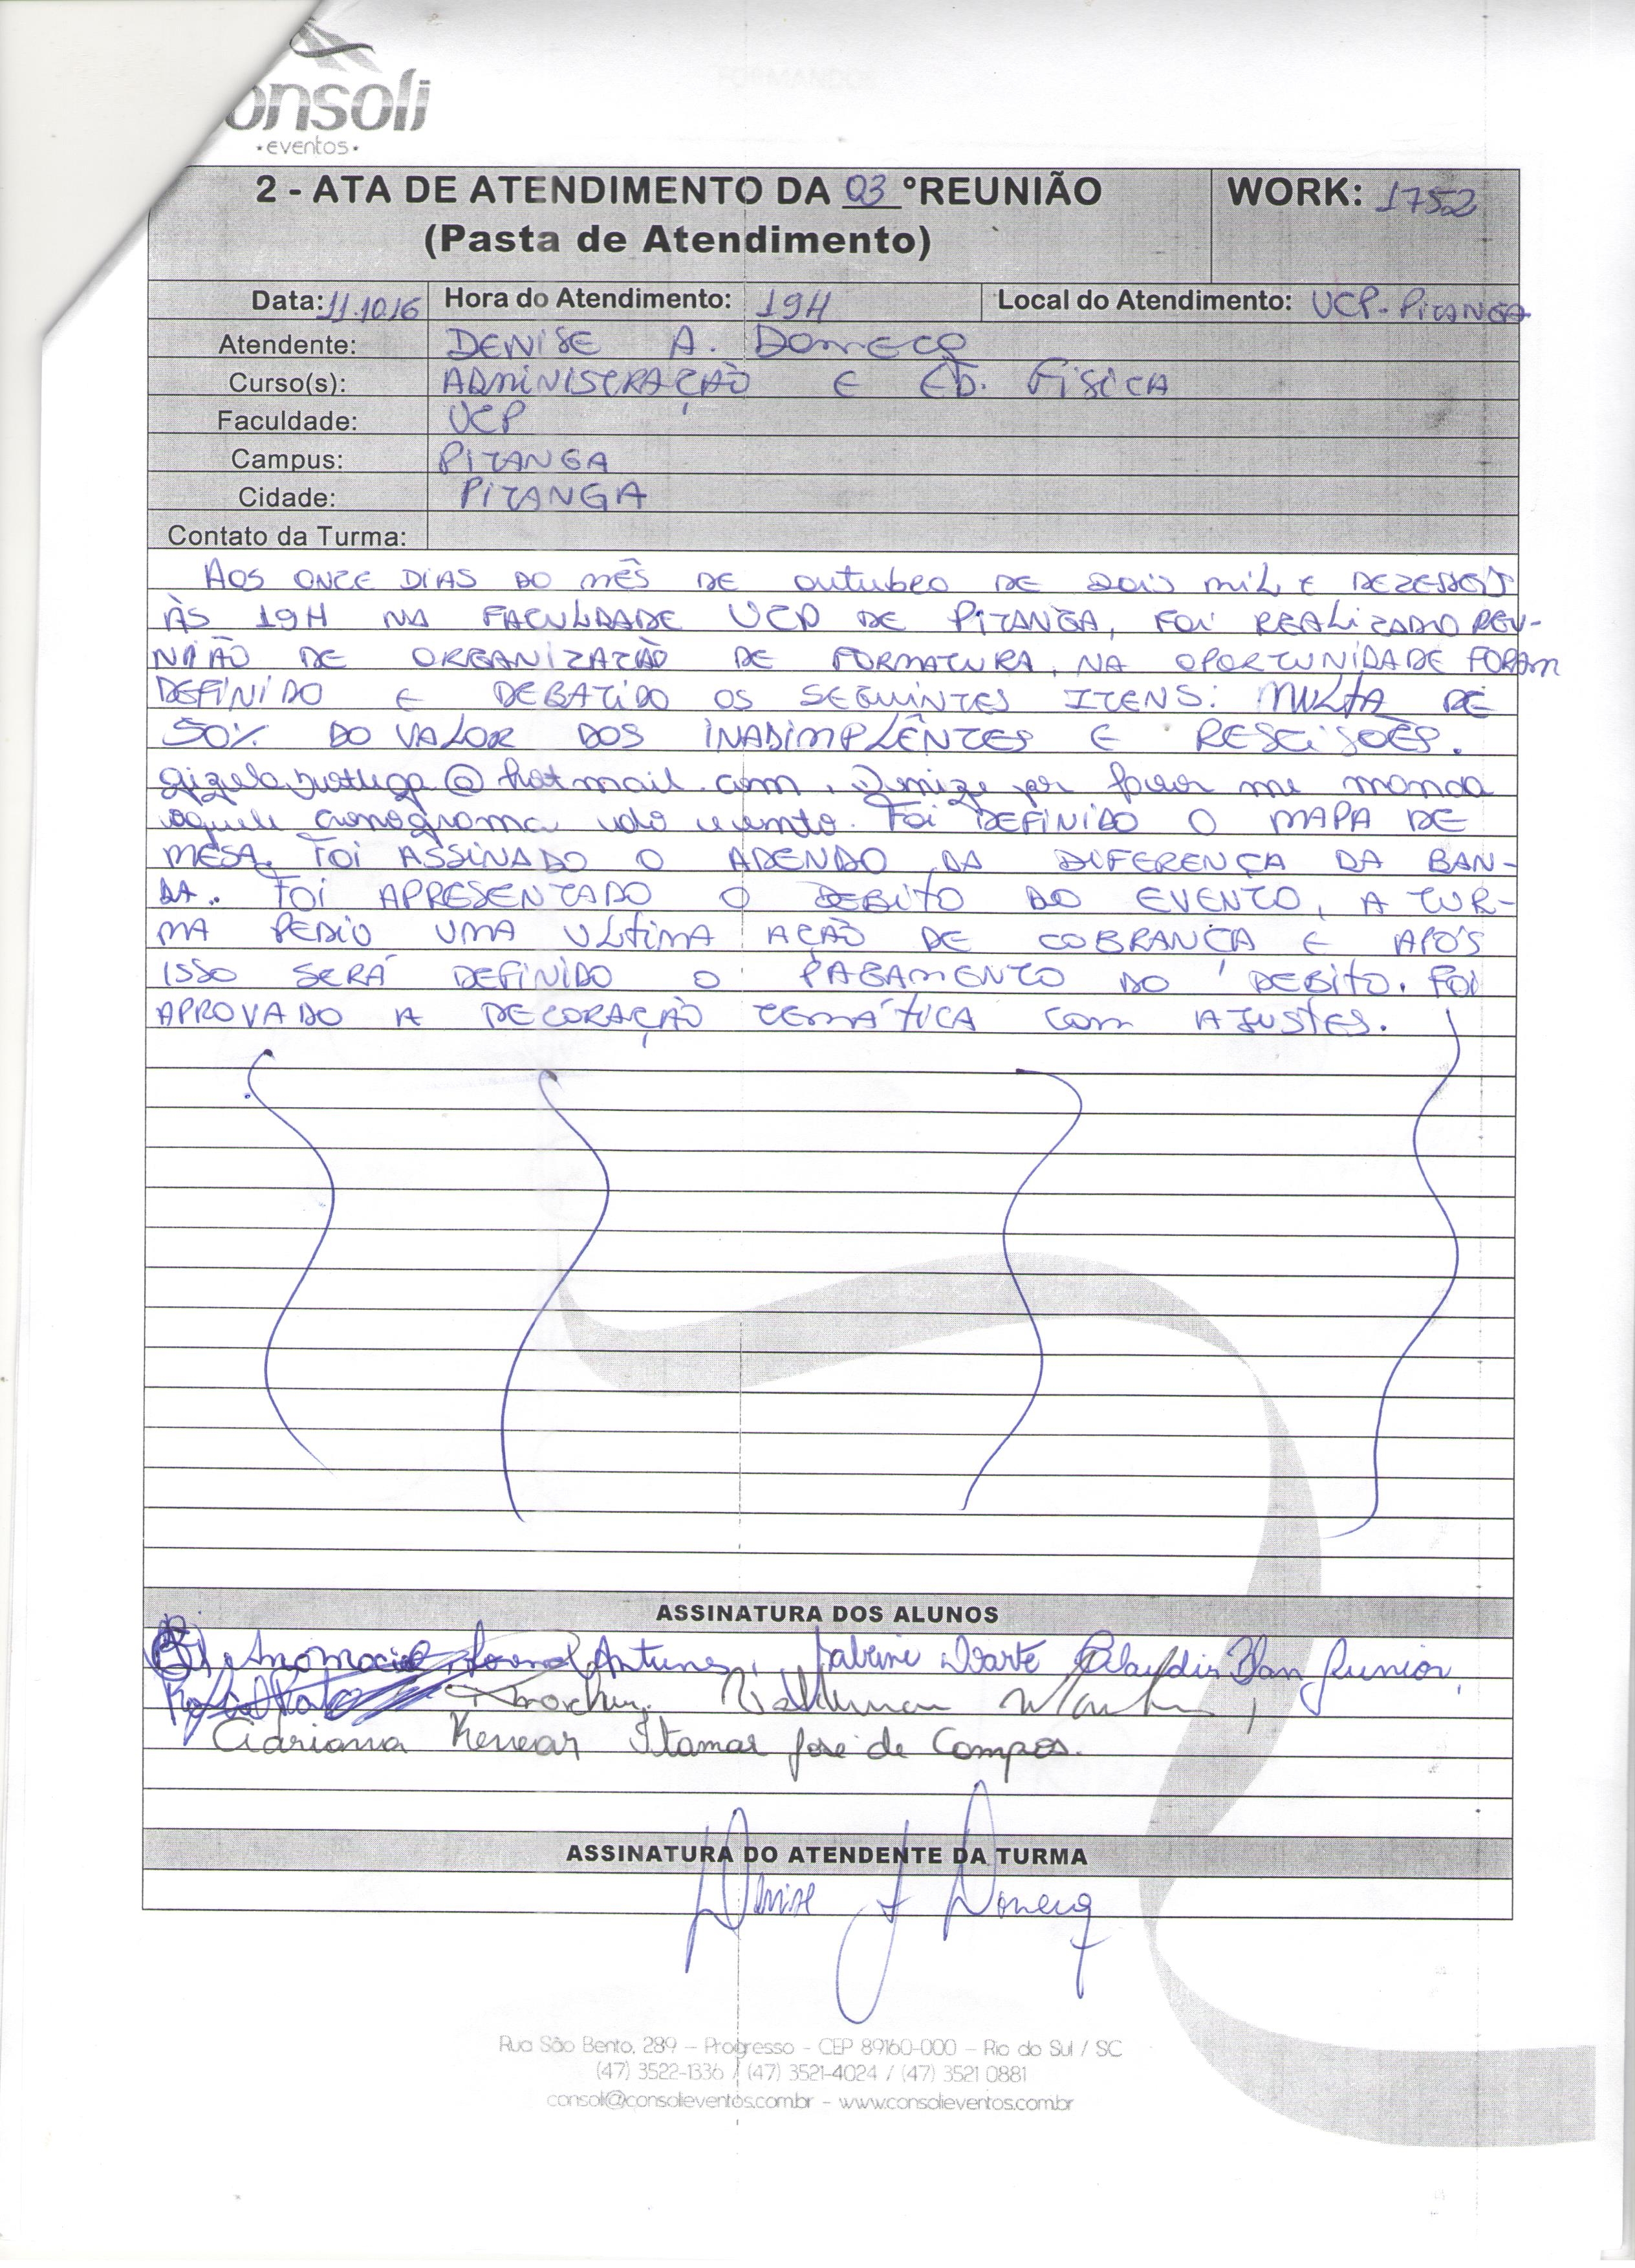 onsoli
•eventos•
2 - ATA DE ATENDIMENTO DA 03 °REUNIÃO
(Pasta de Atendimento)
WORK: 1752
Data: 11.10.16 Hora do Atendimento: 19H Local do Atendimento: UCP-PITANGA
Atendente: DENISE A.
Curso(s): ADMINISTRAÇÃO E ED. FÍSICA
Faculdade: UCP
Campus: PITANGA
Cidade: PITANGA
Contato da Turma:
AOS ONZE DIAS DO MÊS DE outubro DE DOIS MIL E
ÀS 19H NA FACULDADE UCP DE PITANGA, FOI REALIZADO REU-
NIÃO DE ORGANIZAÇÃO DE FORMATURA, NA OPORTUNIDADE FORAM
DEFINIDO E DEBATIDO OS SEGUINTES ITENS: MULTA DE
50% DO VALOR DOS INADIMPLÊNTES E RESCISÕES.
@hotmail.com, por favor me manda
aquele cronograma do evento. FOI DEFINIDO O MAPA DE
MESA. FOI ASSINADO O ADENDO DA DIFERENÇA DA BAN-
DA. FOI APRESENTADO O DEBITO DO EVENTO, A TUR-
MA PEDIO UMA ULTIMA AÇÃO DE COBRANÇA E APÓS
ISSO SERÁ DEFINIDO O PAGAMENTO DO DEBITO. FOI
APROVADO A DECORAÇÃO TEMÁTICA COM AJUSTES.
ASSINATURA DOS ALUNOS
Antunes, Junior,
Adriana Itamar José de Campos.
ASSINATURA DO ATENDENTE DA TURMA
Denise
Rua São Bento, 289 – Progresso - CEP 89160-000 – Rio do Sul / SC
(47) 3522-1336 / (47) 3521-4024 / (47) 3521 0881
consoli@consolieventos.com.br – www.consolieventos.com.br